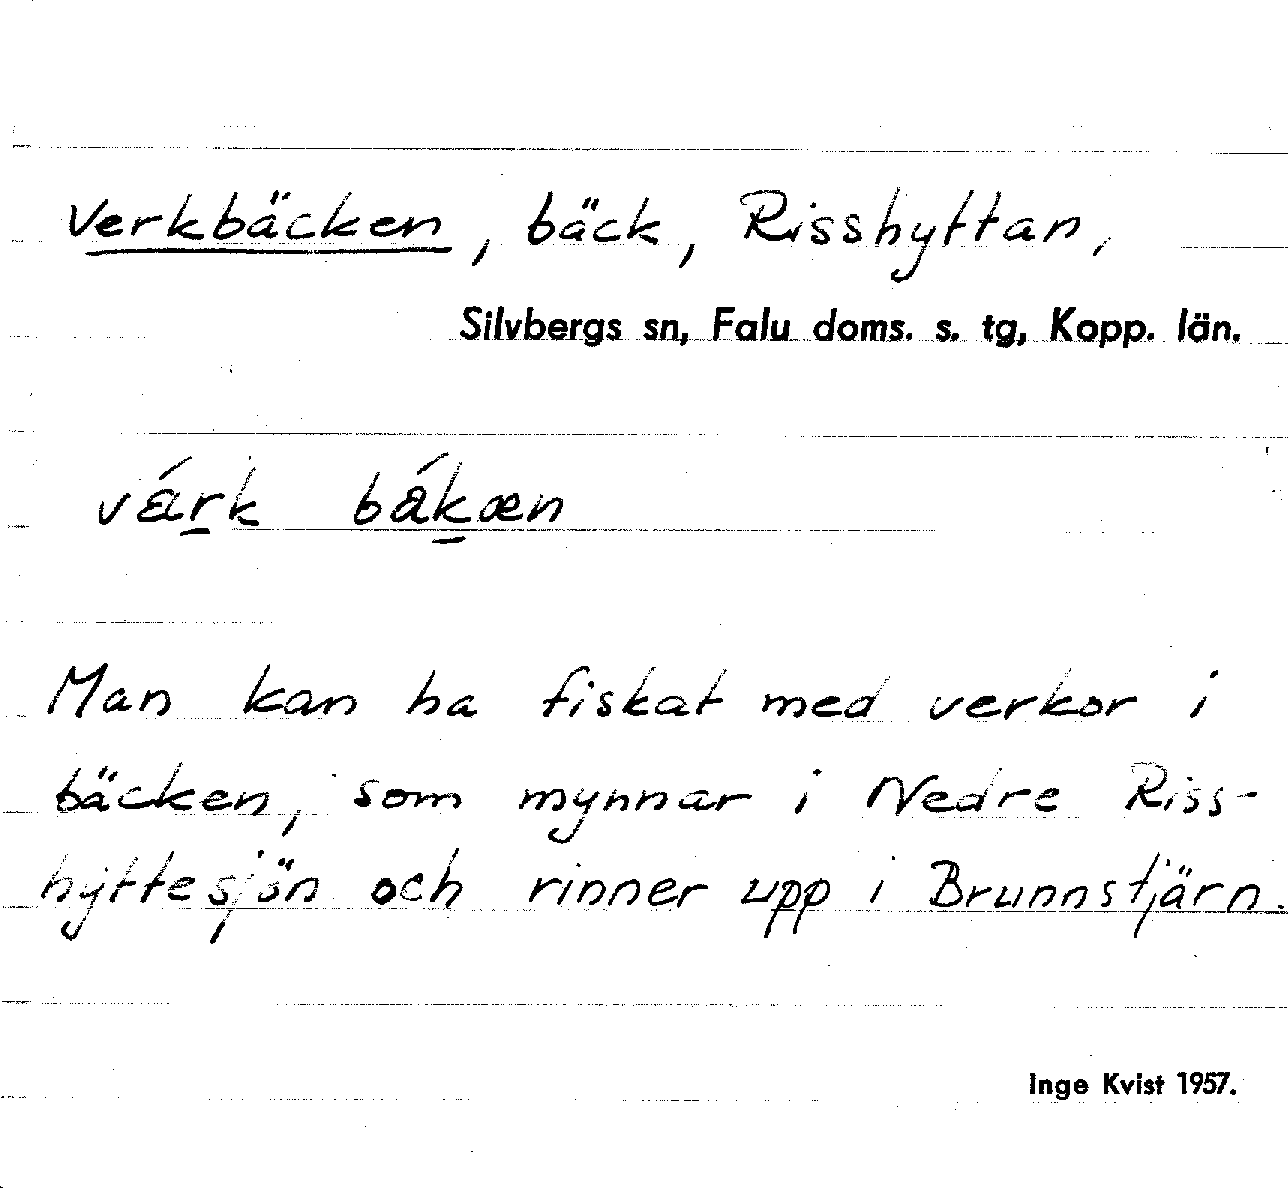 Verkbäcken, bäck, Risshyttan,
Silvbergs sn, Falu doms. s. tg, Kopp. län.
vá̈rk bá̈kæn
Man kan ha fiskat med verkor i
bäcken, som mynnar i Nedre Riss-
hyttesjön och rinner upp i Brunnstjärn.
Inge Kvist 1957.